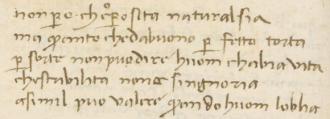 non per o che sposita natural sia
ma quanto che da buono per fetto torta
per sorte non puo dire huom che abia vita
che stabilita non e singnoria
asimil puo valere quando huom lobha